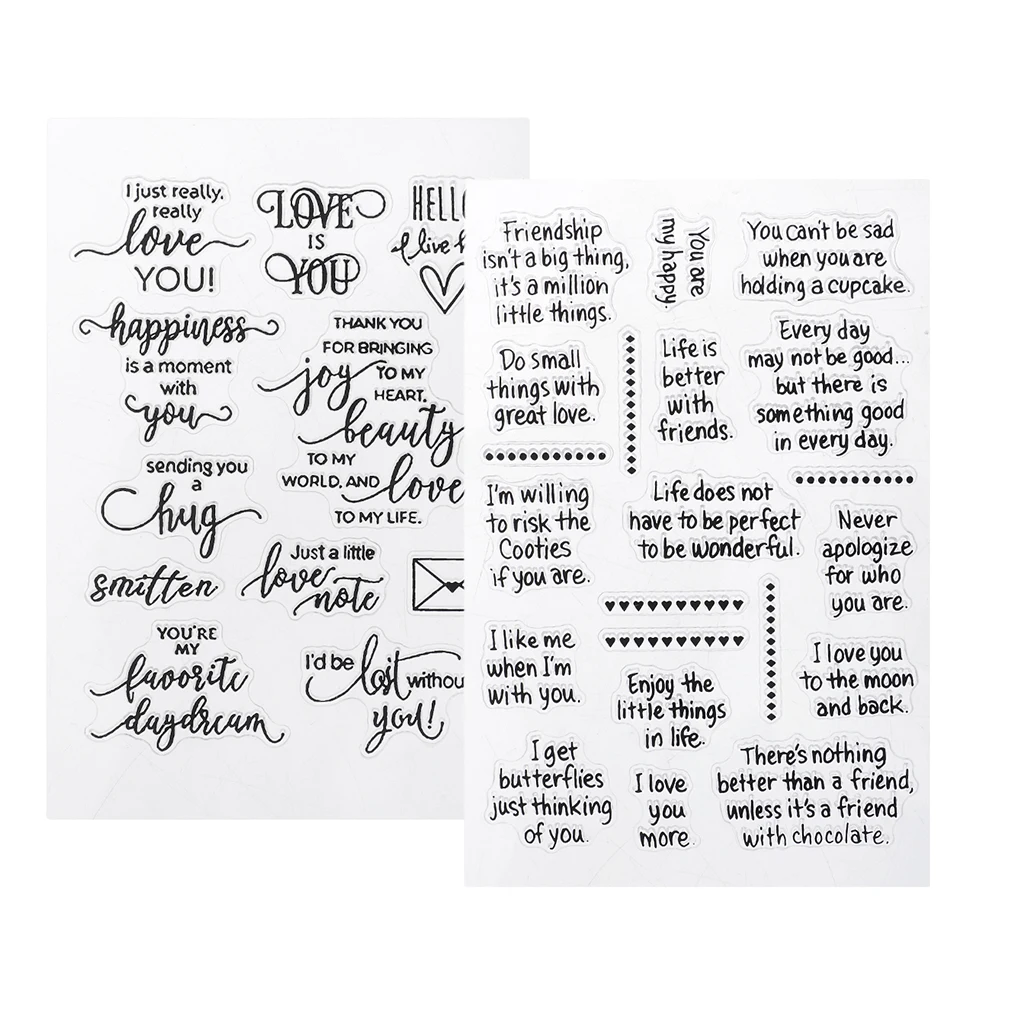 I just really,
really
love
YOU!
LOVE
IS
YOU
happiness
is a moment
with
you
THANK YOU
FOR BRINGING
joy TO MY
HEART,
beauty
TO MY
WORLD, AND love
TO MY LIFE.
sending you
a
hug
smitten
Just a little
love
note
YOU'RE
MY
favorite
daydream
I'd be lost
you!
Friendship
isn't a big thing,
it's a million
little things.
You are
my happy.
You can't be sad
when you are
holding a cupcake.
Do small
things with
great love.
Life is
better
with
friends.
Every day
may not be good...
but there is
something good
in every day.
I'm willing
to risk the
Cooties
if you are.
Life does not
have to be perfect
to be wonderful.
Never
apologize
for who
you are.
I like me
when I'm
with you.
Enjoy the
little things
in life.
I love you
to the moon
and back.
I get
butterflies
just thinking
of you.
I love
you
more.
There's nothing
better than a friend,
unless it's a friend
with chocolate.